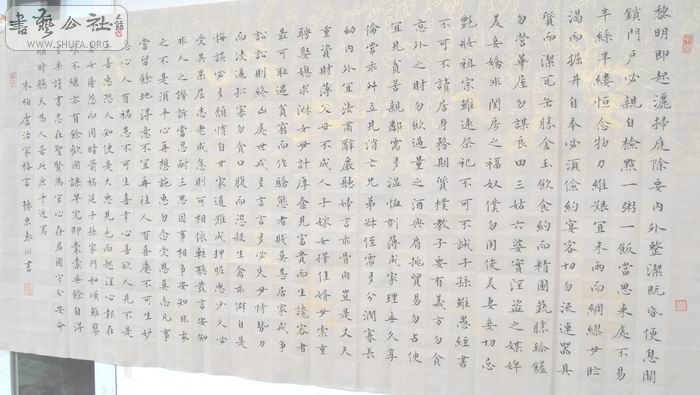 書藝公社
WWW.SHUFA.ORG
黎明即起灑掃庭除要內外整潔既昏便息關
鎖門戶必親自檢點一粥一飯當思來處不易
半絲半縷恒念物力維艱宜未雨而綢繆毋臨
渴而掘井自奉必須儉約宴客切勿流連器具
質而潔瓦缶勝金玉飲食約而精園蔬勝珍饈
勿營華屋勿謀良田三姑六婆實淫盜之媒婢
美妾嬌非閨房之福奴僕勿用俊美妻妾切忌
艷妝祖宗雖遠祭祀不可不誠子孫雖愚經書
不可不讀居身務期質樸教子要有義方勿貪
意外之財勿飲過量之酒與肩挑貿易勿占便
宜見貧苦親鄰需多溫恤刻薄成家理無久享
倫常乖舛立見消亡兄弟叔侄需多分潤寡長
幼內外宜法肅辭嚴聽婦言乖骨肉豈是丈夫
重資財薄父母不成人子嫁女擇佳婿毋索重
聘娶媳求淑女毋計厚奩見富貴而生諂容者
最可恥遇貧窮而作驕態者賤莫甚居家戒爭
訟訟則終凶處世戒多言言多必失毋恃勢力
而凌逼孤寡毋貪口腹而恣殺生禽乖僻自是
悔誤必多頹惰自甘家道難成狎昵惡少久必
受其累屈志老成急則可相依輕聽發言安知
非人之譖訴當忍耐三思因事相爭安知非我
之不是須平心再想施惠勿念受恩莫忘凡事
當留餘地得意不宜再往人有喜慶不可生妒
忌心人有禍患不可生喜幸心善欲人見不是
真善惡恐人知便是大惡見色而起淫心報在
妻女匿怨而用暗箭禍延子孫家門和順雖饔
飧不繼亦有餘歡國課早完即囊橐無餘自得
至樂讀書志在聖賢為官心存君國守分安命
順時聽天為人若此庶乎近焉
朱柏廬治家格言 孫東 書